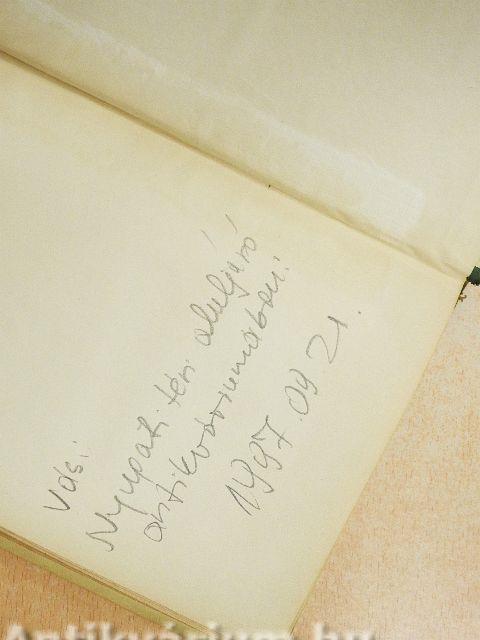 Vás:
Nyugati téri aluljáró
antikváriumában:
1997. 09 21.
Antikvárium.hu